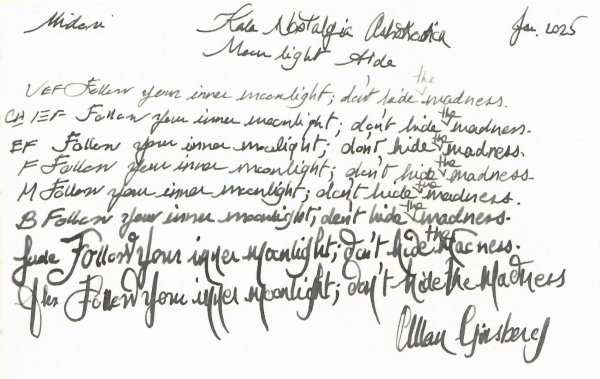 Midori Kala Nostalgia Jan. 2025
Moon light
VEF Follow your inner moonlight; don't hide the madness.
EF Follow your inner moonlight; don't hide the madness.
EF Follow your inner moonlight; don't hide the madness.
F Follow your inner moonlight; don't hide the madness.
M Follow your inner moonlight; don't hide the madness.
B Follow your inner moonlight; don't hide the madness.
Jude Follow your inner moonlight; don't hide the madness.
Flex Follow your inner moonlight; don't hide the madness
Allan Ginsberg